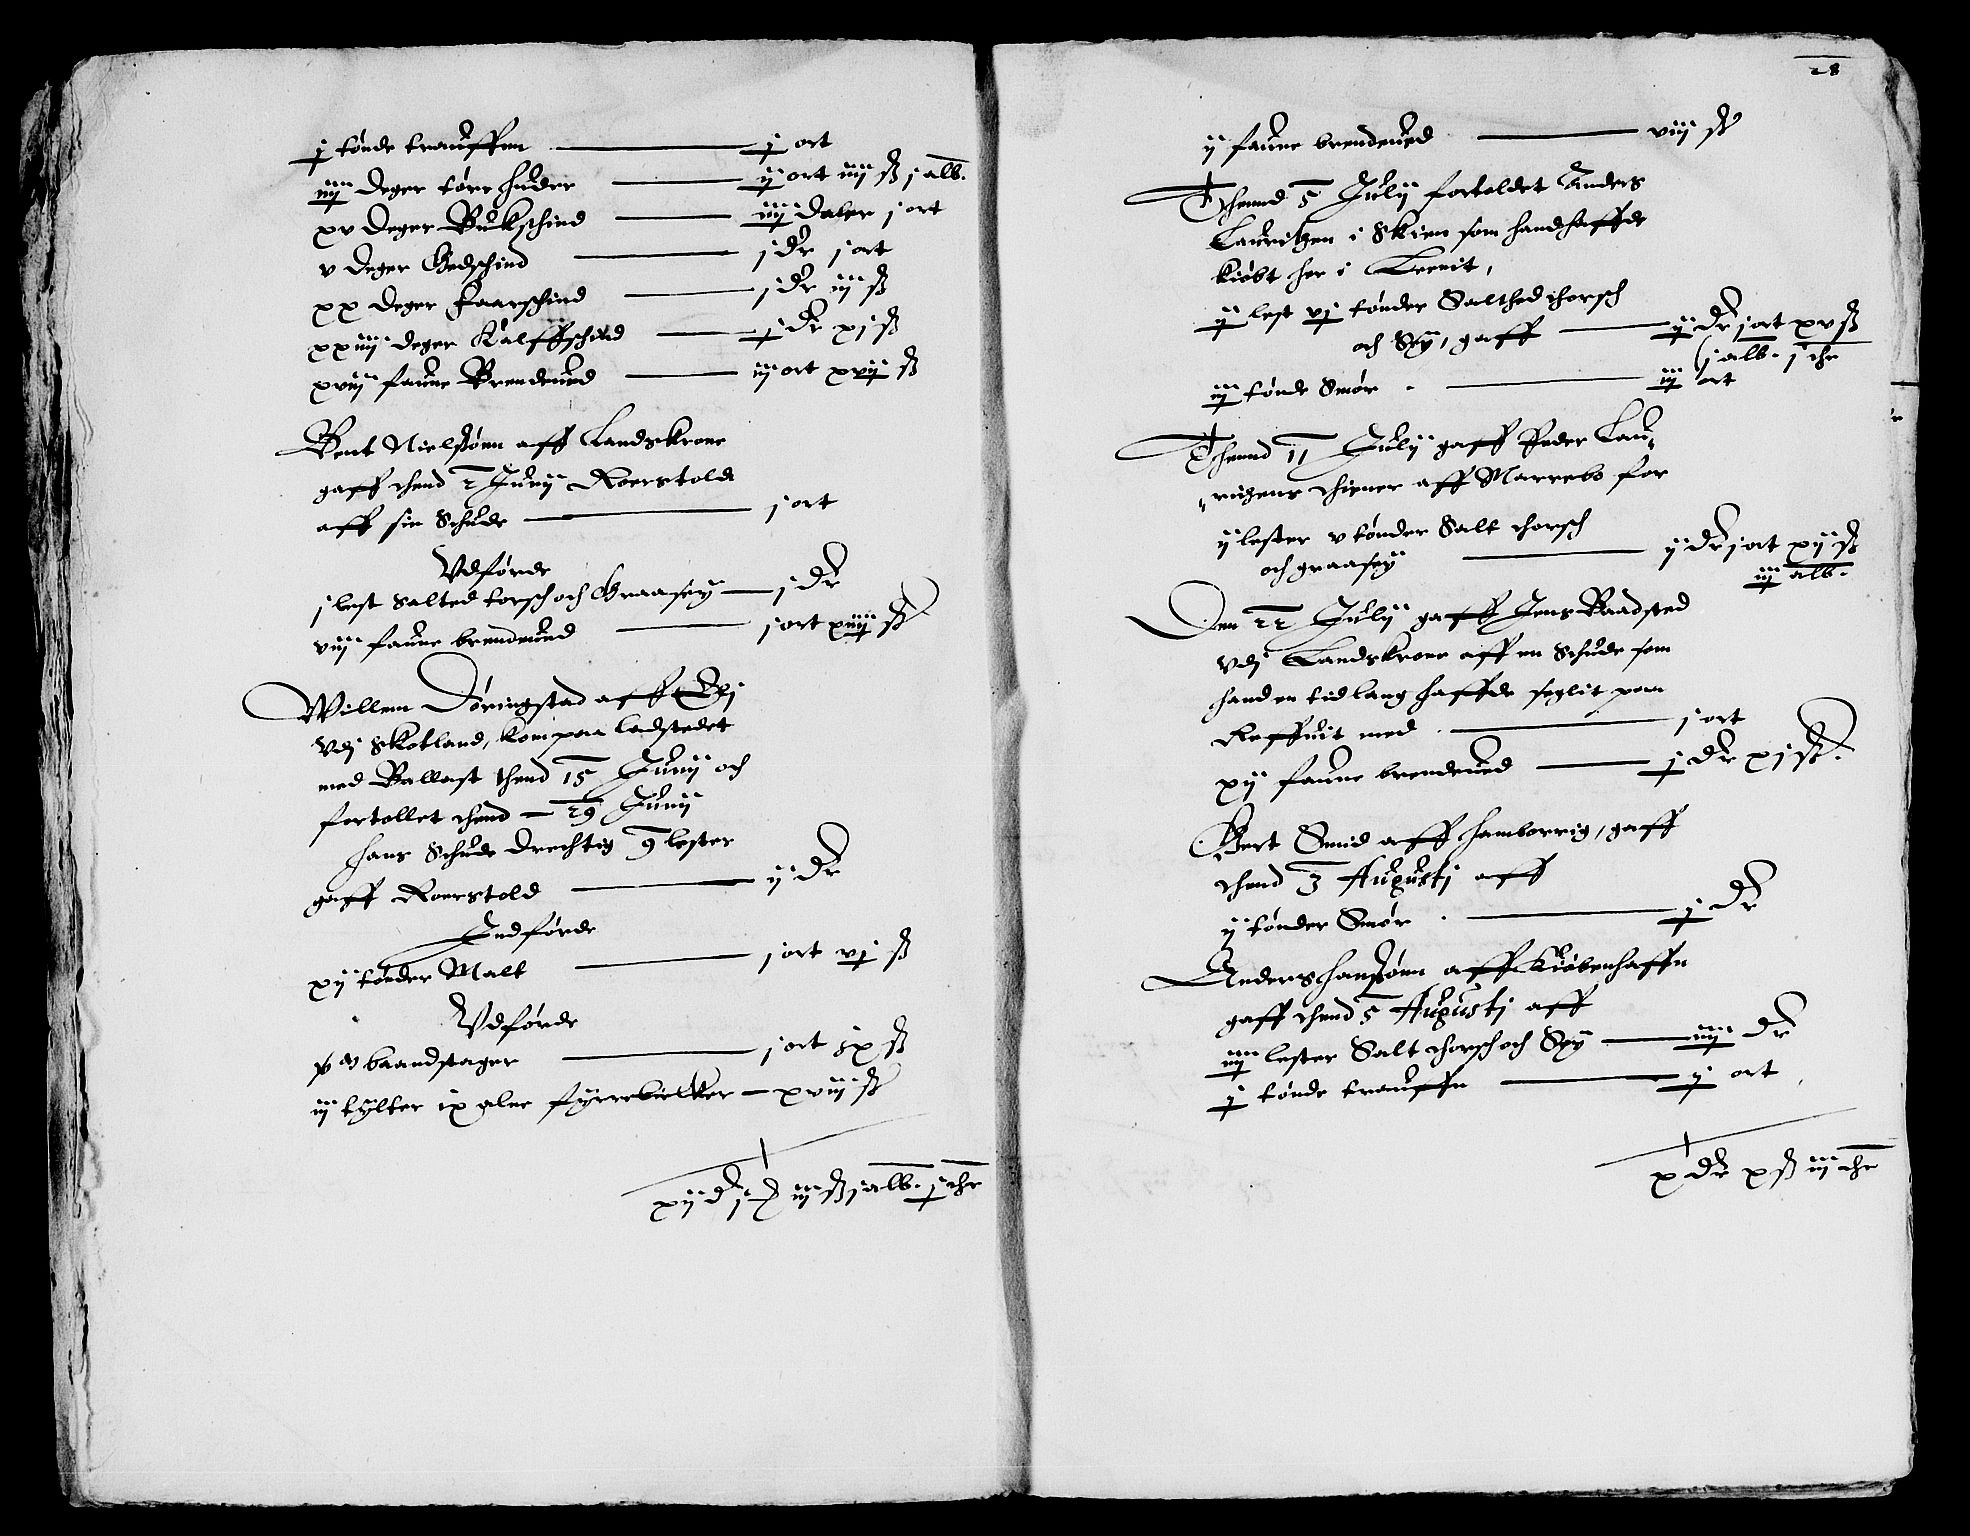 j tønde trauffen j ort
iiij deger tørr huder ij ort iiij ß j alb.
xv deger Bukschind iiij daler j ort
v deger Gedschind j dr j ort
xx deger faarschind j dr iij ß
xxiiij deger Kalffschind j dr xj ß
xviij faune Brendeued iij ort xvij ß
Bent Nielsønn aff Landskrone
gaff thend 2 Junij Roerstold
aff sin Schude j ort
Vdførde
j lest salted torsch och Graasey j dr
viij faune brendeued j ort xiiij ß
Willem Døringstad aff
vdj Skotland, kom paa ladstedet
med Ballast thend 15 Junij och
fortollet thend 29 Junij
hans Schude drechtig 9 lester
gaff Roerstold ij dr
Indførde
xij tønder Malt j ort vj ß
Vdførde
baandstager j ort ix ß
iij tylter ix alne fyrrebielker xviij ß
xij d iij ß j alb. j
28
ij faune brendeued viij ß
Thennd 5 Julij fortoldet Anders
Lauritzen i Skien som hand haffde
kiøbt her i
ij lest vj tønder Salthed thorsch
och Sey, gaff ij dr j ort xv ß
j alb. j
iij tønde Smør iij ort
Thennd 11 Julij gaff Peder Lau„
„ritzens thiener aff Marrebo for
ij lester v tønder Salt thorsch
och graasey ij dr j ort xij ß
iij alb.
Den 22 Julij gaff Jens Baadsted
vdj Landskrone aff en Schude som
hand en tid lang haffde seglit paa
Reffuit med j ort
xij faune brendeued j dr xj ß.
Gert Smid aff hamborrig, gaff
thend 3 Augustj aff
ij tønder Smør j dr
Anders hansønn aff Kiøbenhaffn
gaff thend 5 Augustj aff
iiij lester Salt thorsch och Sey iiij dr
j tønde trauffn ij ort
x dr x ß iij